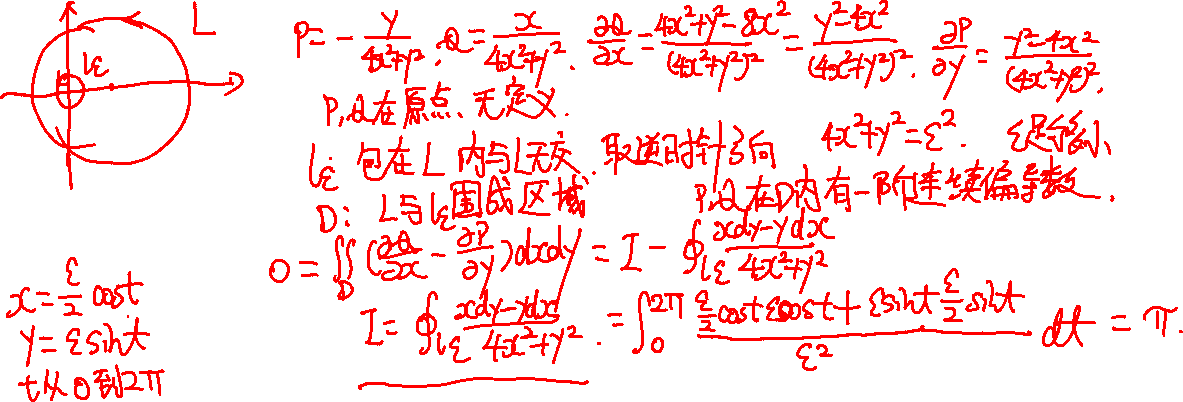 L
lε
P=-y/(4x²+y²), Q=x/(4x²+y²). ∂Q/∂x=(4x²+y²-8x²)/(4x²+y²)²=(y²-4x²)/(4x²+y²)². ∂P/∂y=(y²-4x²)/(4x²+y²)².
P,Q在原点无定义.
lε 包在L内与L无交. 取逆时针方向 4x²+y²=ε². ε足够小
D: L与lε围成区域 P,Q在D内有一阶连续偏导数.
0=∬_D(∂Q/∂x-∂P/∂y)dxdy=I-∮_lε (xdy-ydx)/(4x²+y²)
x=ε/2 cost
y=εsint
t从0到2π
I=∮_lε (xdy-ydx)/(4x²+y²).=∫₀^2π (ε/2 cost εcost+εsint ε/2 sint)/ε² dt=π.